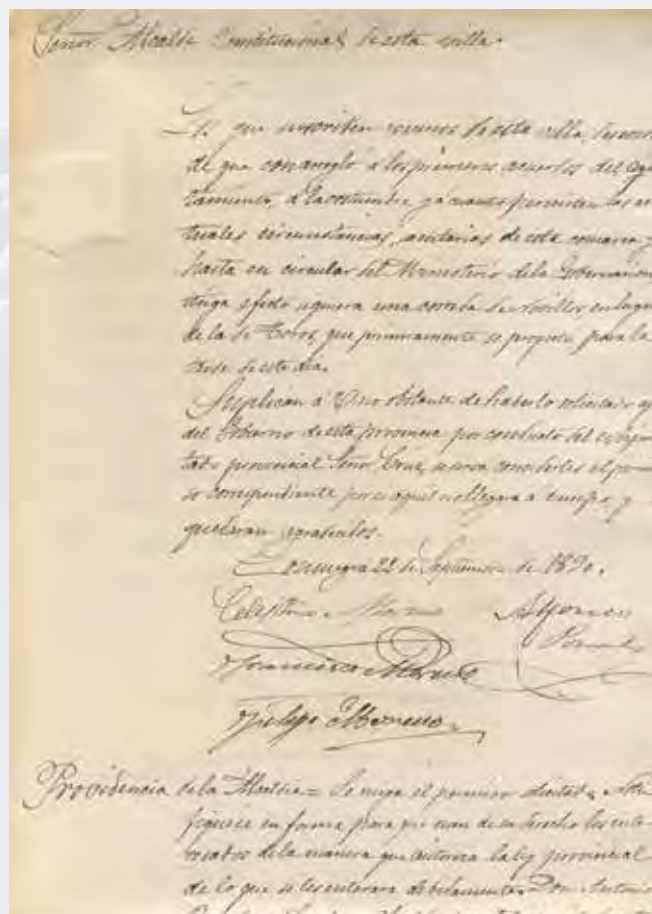 Señor Alcalde Constitucional de esta villa.
Los que suscriben vecinos de esta villa,
de que con arreglo a los primeros acuerdos del ayun
tamiento, a la costumbre y a cuanto permiten las ac
tuales circunstancias sanitarias de esta comarca y
hasta en circular del Ministerio de la Gobernación
tenga efecto siquiera una corrida de novillos en lugar
de la de Toros, que primeramente se propuso, para la
tarde de este dia.
Suplican a V. no obstante de haberlo solicitado
del Gobierno de esta provincia por conducto del
tado provincial Señor Cruz, se sirva concederles el permi
so correspondiente por si aquel no llegara a tiempo, y
quedaran agradecidos.
Consuegra 22 de Septiembre de 1890.
Celestino Alfonso
Francisco Moreno
Felipe Moreno
Providencia de la Alcaldia = Se niega el permiso
fiquese en forma para que usen de su derecho los inte
resados de la manera que autoriza la ley provincial
de lo que se les enterara debidamente. Don Antonio